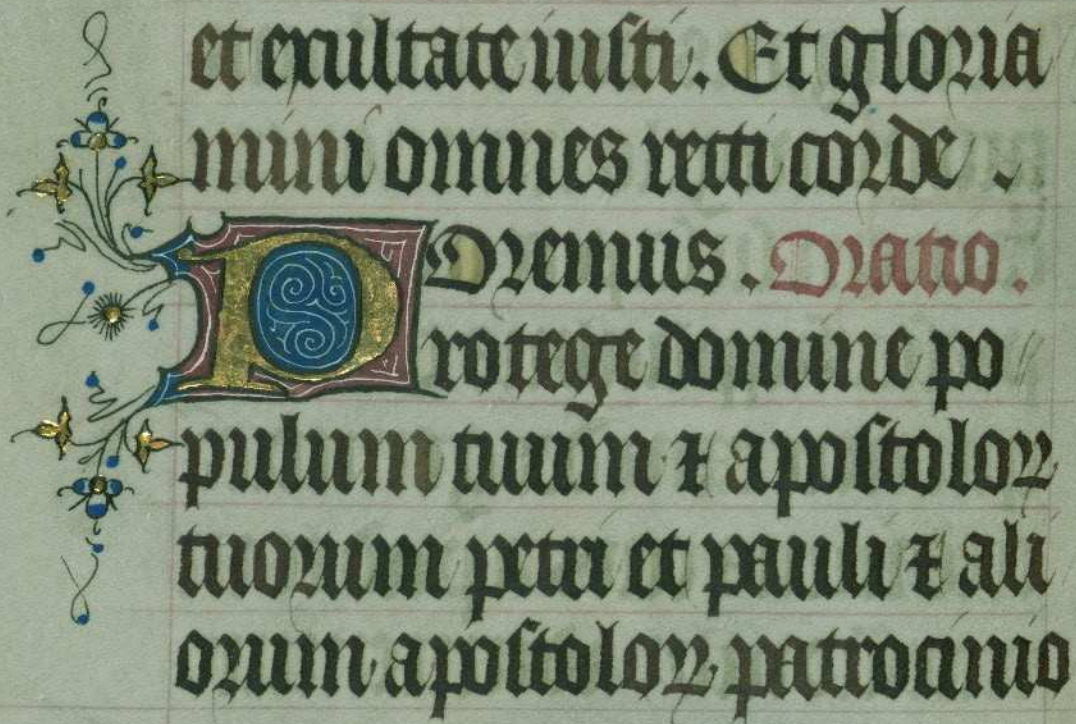 et exultate iusti. Et gloria
mini omnes recti corde.
Oremus. Oratio.
Protege domine po
pulum tuum ⁊ apostoloꝝ
tuorum petri et pauli ⁊ ali
orum apostoloꝝ patrocinio